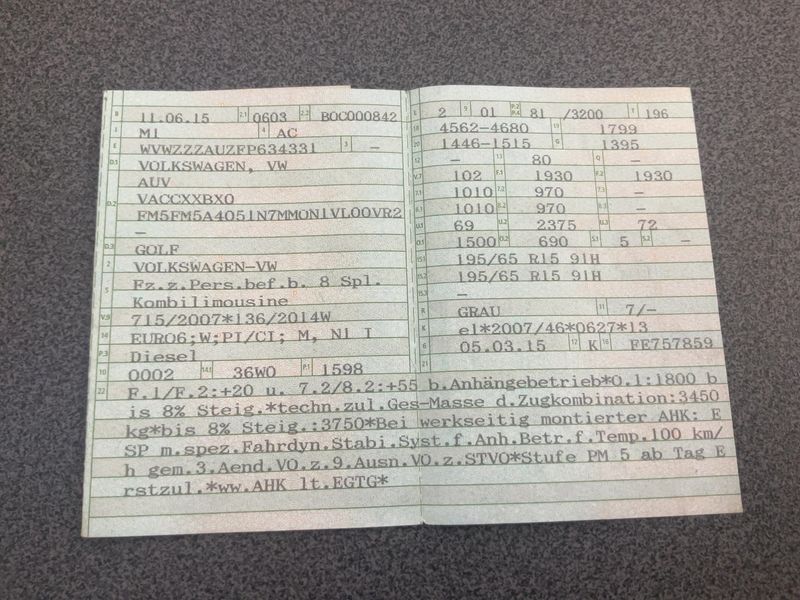 B 11.06.15 2.1 0603 2.2 BOC000842
J M1 4 AC
E WVWZZZAUZFP634331 3 –
D.1 VOLKSWAGEN, VW
AUV
D.2 VACCXXBX0
FM5FM5A4051N7MMON1VL00VR2
–
D.3 GOLF
2 VOLKSWAGEN-VW
5 Fz.z.Pers.bef.b. 8 Spl.
Kombilimousine
V.9 715/2007*136/2014W
14 EURO6;W;PI/CI; M, N1 I
P.3 Diesel
10 0002 14.1 36W0 P.1 1598
L 2 9 01 P.2 P.4 81 /3200 T 196
18 4562-4680 19 1799
20 1446-1515 G 1395
12 – 13 80 Q –
V.7 102 F.1 1930 F.2 1930
7.1 1010 7.2 970 7.3 –
8.1 1010 8.2 970 8.3 –
U.1 69 U.2 2375 U.3 72
O.1 1500 O.2 690 S.1 5 S.2 –
15.1 195/65 R15 91H
15.2 195/65 R15 91H
15.3 –
R GRAU 11 7/–
K e1*2007/46*0627*13
6 05.03.15 17 K 16 FE757859
21
22 F.1/F.2:+20 u. 7.2/8.2:+55 b.Anhängebetrieb*O.1:1800 b
is 8% Steig.*techn.zul.Ges-Masse d.Zugkombination:3450
kg*bis 8% Steig.:3750*Bei werkseitig montierter AHK: E
SP m.spez.Fahrdyn.Stabi.Syst.f.Anh.Betr.f.Temp.100 km/
h gem.3.Aend.VO.z.9.Ausn.VO.z.STVO*Stufe PM 5 ab Tag E
rstzul.*ww.AHK lt.EGTG*